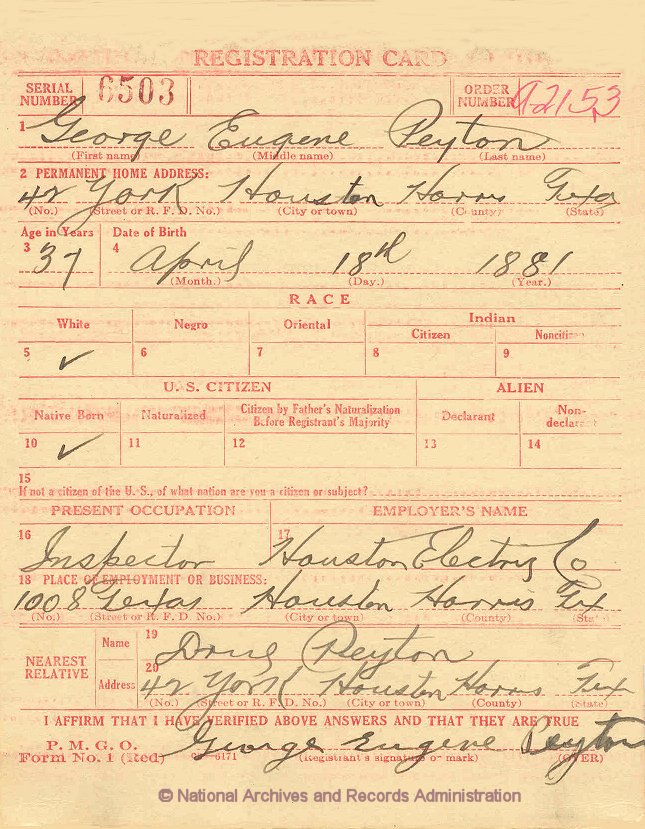 REGISTRATION CARD
SERIAL NUMBER 6503 ORDER NUMBER A2153
1 George Eugene Peyton
(First name) (Middle name) (Last name)
2 PERMANENT HOME ADDRESS:
42 York Houston Harris Texas
(No.) (Street or R. F. D. No.) (City or town) (County) (State)
Age in Years Date of Birth
3 37 4 April 18th 1881
(Month.) (Day.) (Year.)
RACE
White Negro Oriental Indian
Citizen Noncitizen
5 ✓ 6 7 8 9
U. S. CITIZEN ALIEN
Native Born Naturalized Citizen by Father's Naturalization Before Registrant's Majority Declarant Non-declarant
10 ✓ 11 12 13 14
15
If not a citizen of the U. S., of what nation are you a citizen or subject?
PRESENT OCCUPATION EMPLOYER'S NAME
16 Inspector 17 Houston Electric Co
18 PLACE OF EMPLOYMENT OR BUSINESS:
1008 Texas Houston Harris Tex
(No.) (Street or R. F. D. No.) (City or town) (County) (State)
NEAREST RELATIVE
Name 19 Peyton
Address 20 42 York Houston Harris Tex
(No.) (Street or R. F. D. No.) (City or town) (County) (State)
I AFFIRM THAT I HAVE VERIFIED ABOVE ANSWERS AND THAT THEY ARE TRUE
P. M. G. O.
Form No. 1 (Red) 6171 George Eugene Peyton
(Registrant's signature or mark) (OVER)
© National Archives and Records Administration